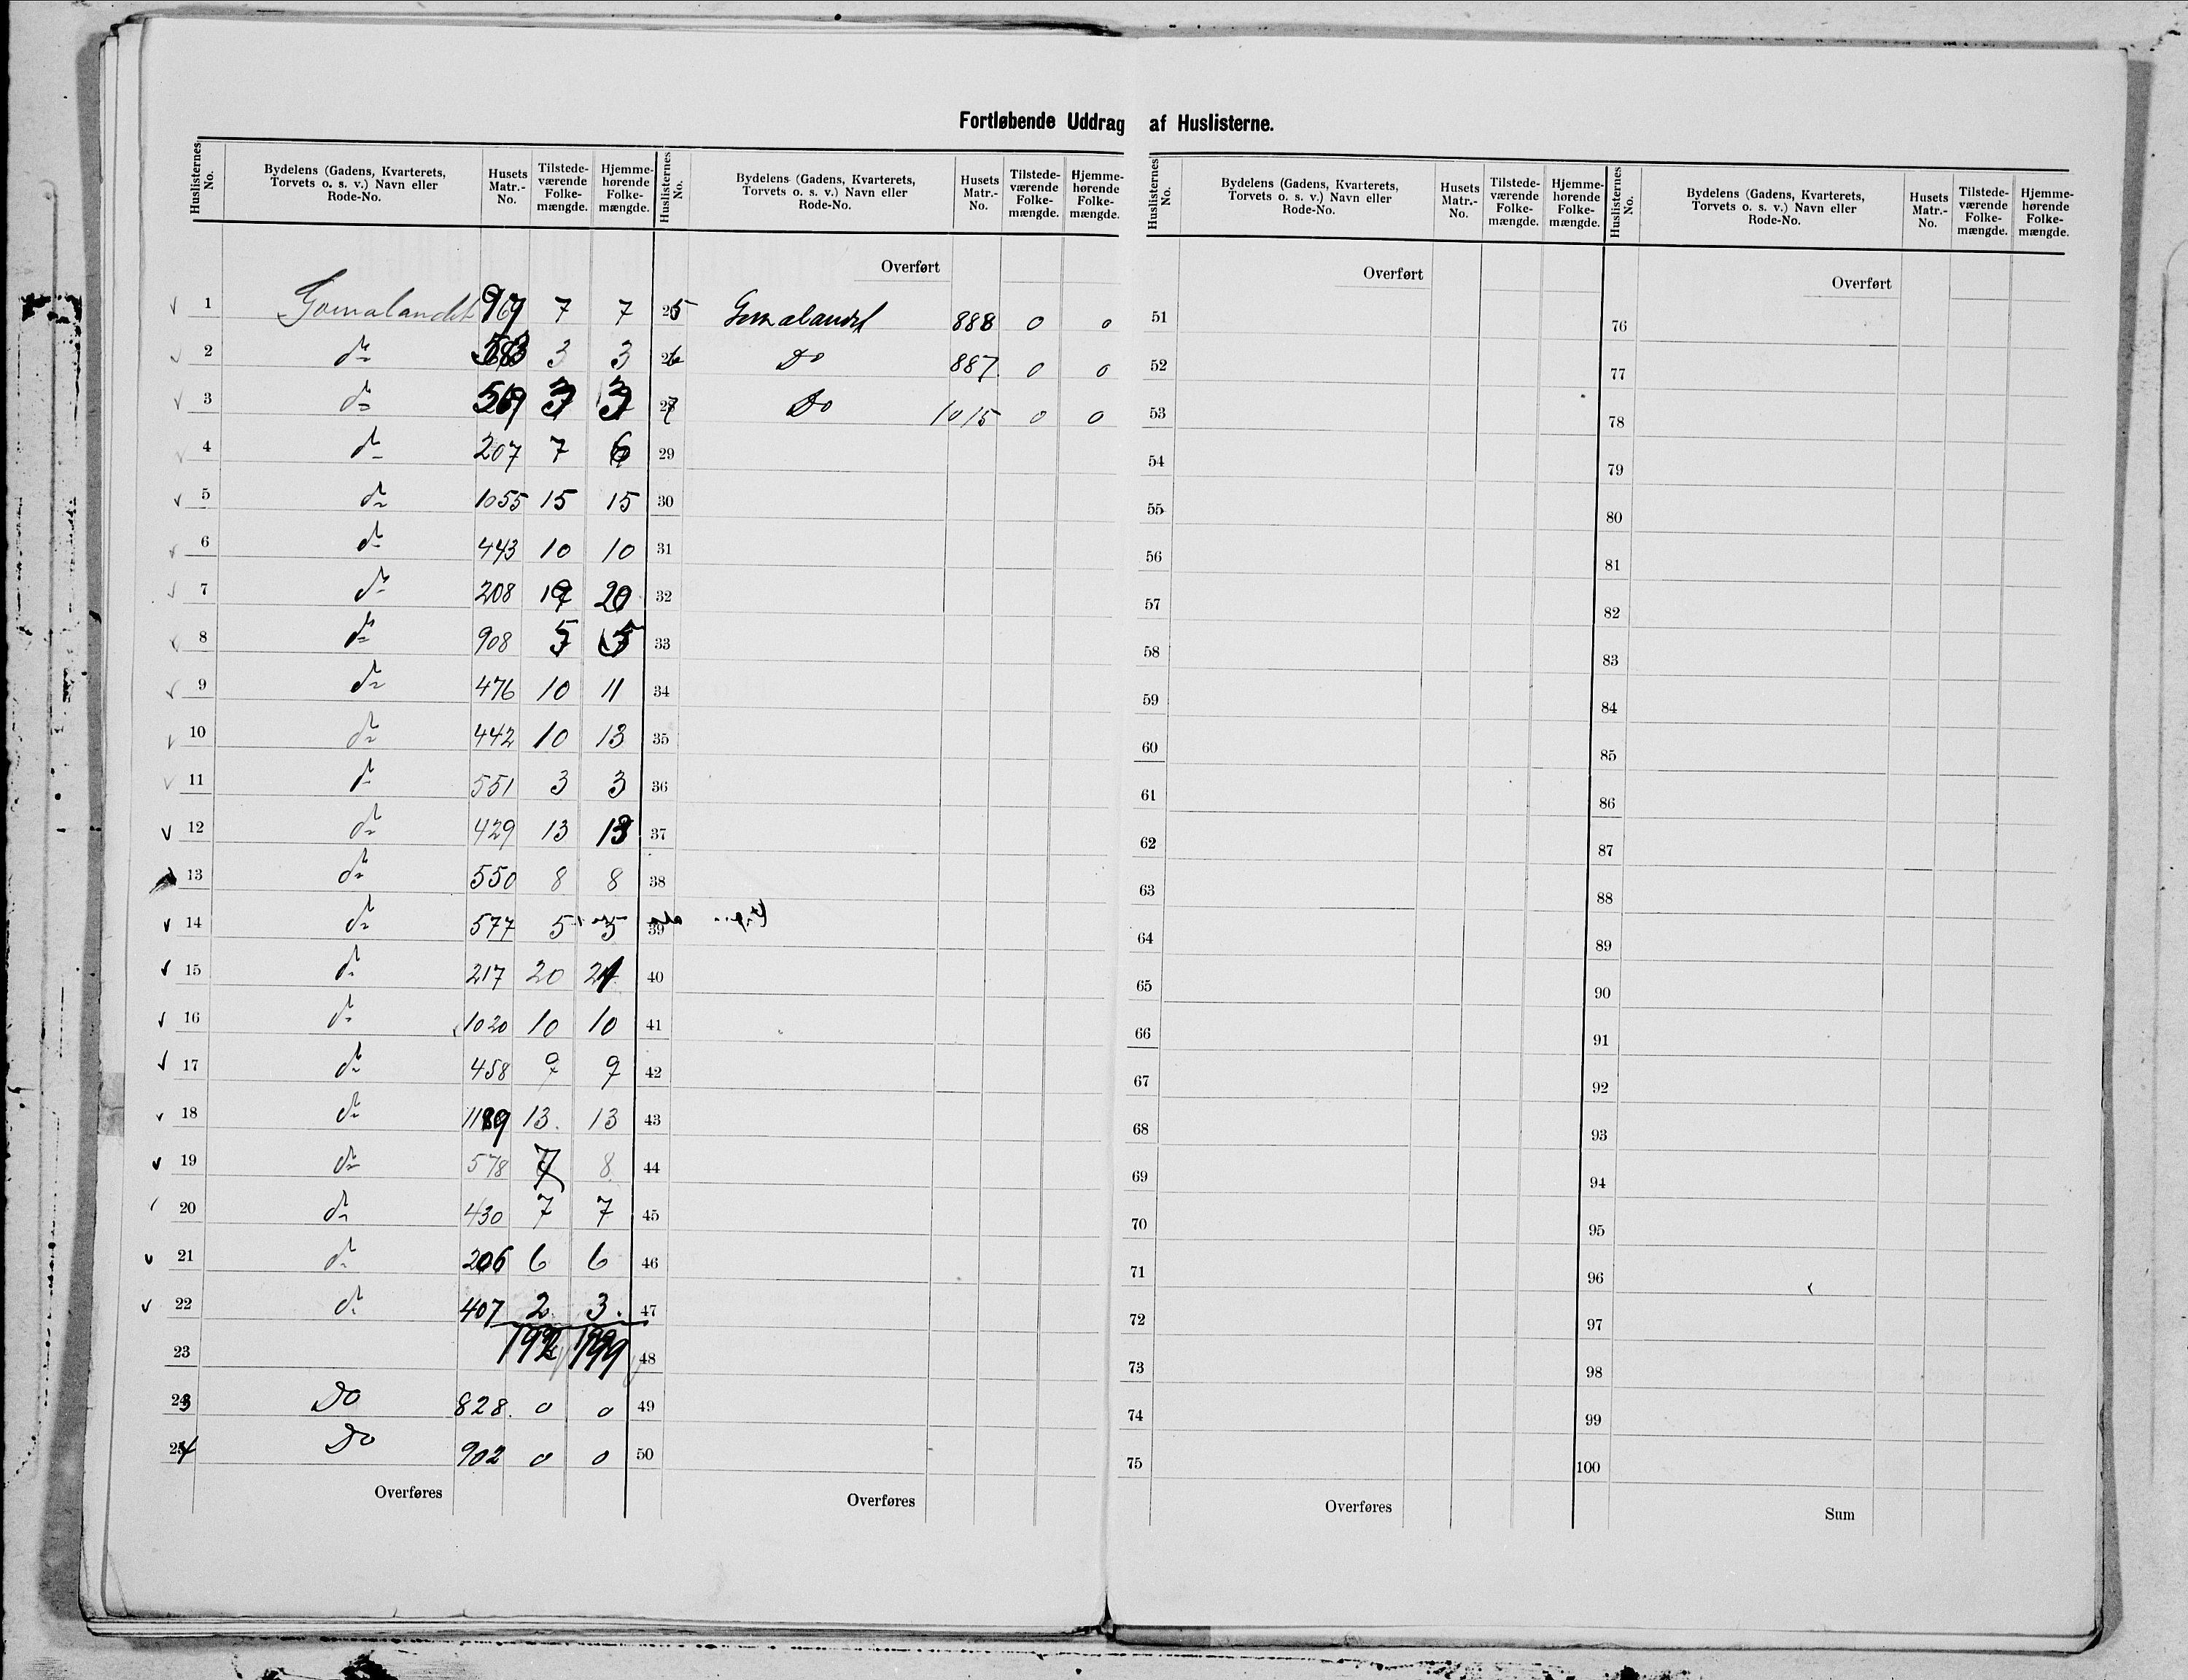 Fortløbende Uddrag af Huslisterne.
Huslisternes No. Bydelens (Gadens, Kvarterets, Torvets o. s. v.) Navn eller Rode-No. Husets Matr.-No. Tilstedeværende Folkemængde. Hjemmehørende Folkemængde.
1 Gomalandet 969 7 7
2 do 583 3 3
3 do 569 3 3
4 do 207 7 6
5 do 1055 15 15
6 do 443 10 10
7 do 208 19 20
8 do 908 5 5
9 do 476 10 11
10 do 442 10 13
11 do 551 3 3
12 do 429 13 13
13 do 550 8 8
14 do 577 5 5
15 do 217 20 21
16 do 1020 10 10
17 do 458 9 9
18 do 1189 13. 13
19 do 578 7 8
20 do 430 7 7
21 do 206 6 6
22 do 407 2. 3.
23 192 199
23 Do 828. 0 0
24 Do 902 0 0
Overføres
Huslisternes No. Bydelens (Gadens, Kvarterets, Torvets o. s. v.) Navn eller Rode-No. Husets Matr.-No. Tilstedeværende Folkemængde. Hjemmehørende Folkemængde.
Overført
25 Gomalandet 888 0 0
26 Do 887 0 0
27 Do 1015 0 0
29
30
31
32
33
34
35
36
37
38
39
40
41
42
43
44
45
46
47
48
49
50
Overføres
Huslisternes No. Bydelens (Gadens, Kvarterets, Torvets o. s. v.) Navn eller Rode-No. Husets Matr.-No. Tilstedeværende Folkemængde. Hjemmehørende Folkemængde.
Overført
51
52
53
54
55
56
57
58
59
60
61
62
63
64
65
66
67
68
69
70
71
72
73
74
75
Overføres
Huslisternes No. Bydelens (Gadens, Kvarterets, Torvets o. s. v.) Navn eller Rode-No. Husets Matr.-No. Tilstedeværende Folkemængde. Hjemmehørende Folkemængde.
Overført
76
77
78
79
80
81
82
83
84
85
86
87
88
89
90
91
92
93
94
95
96
97
98
99
100
Sum